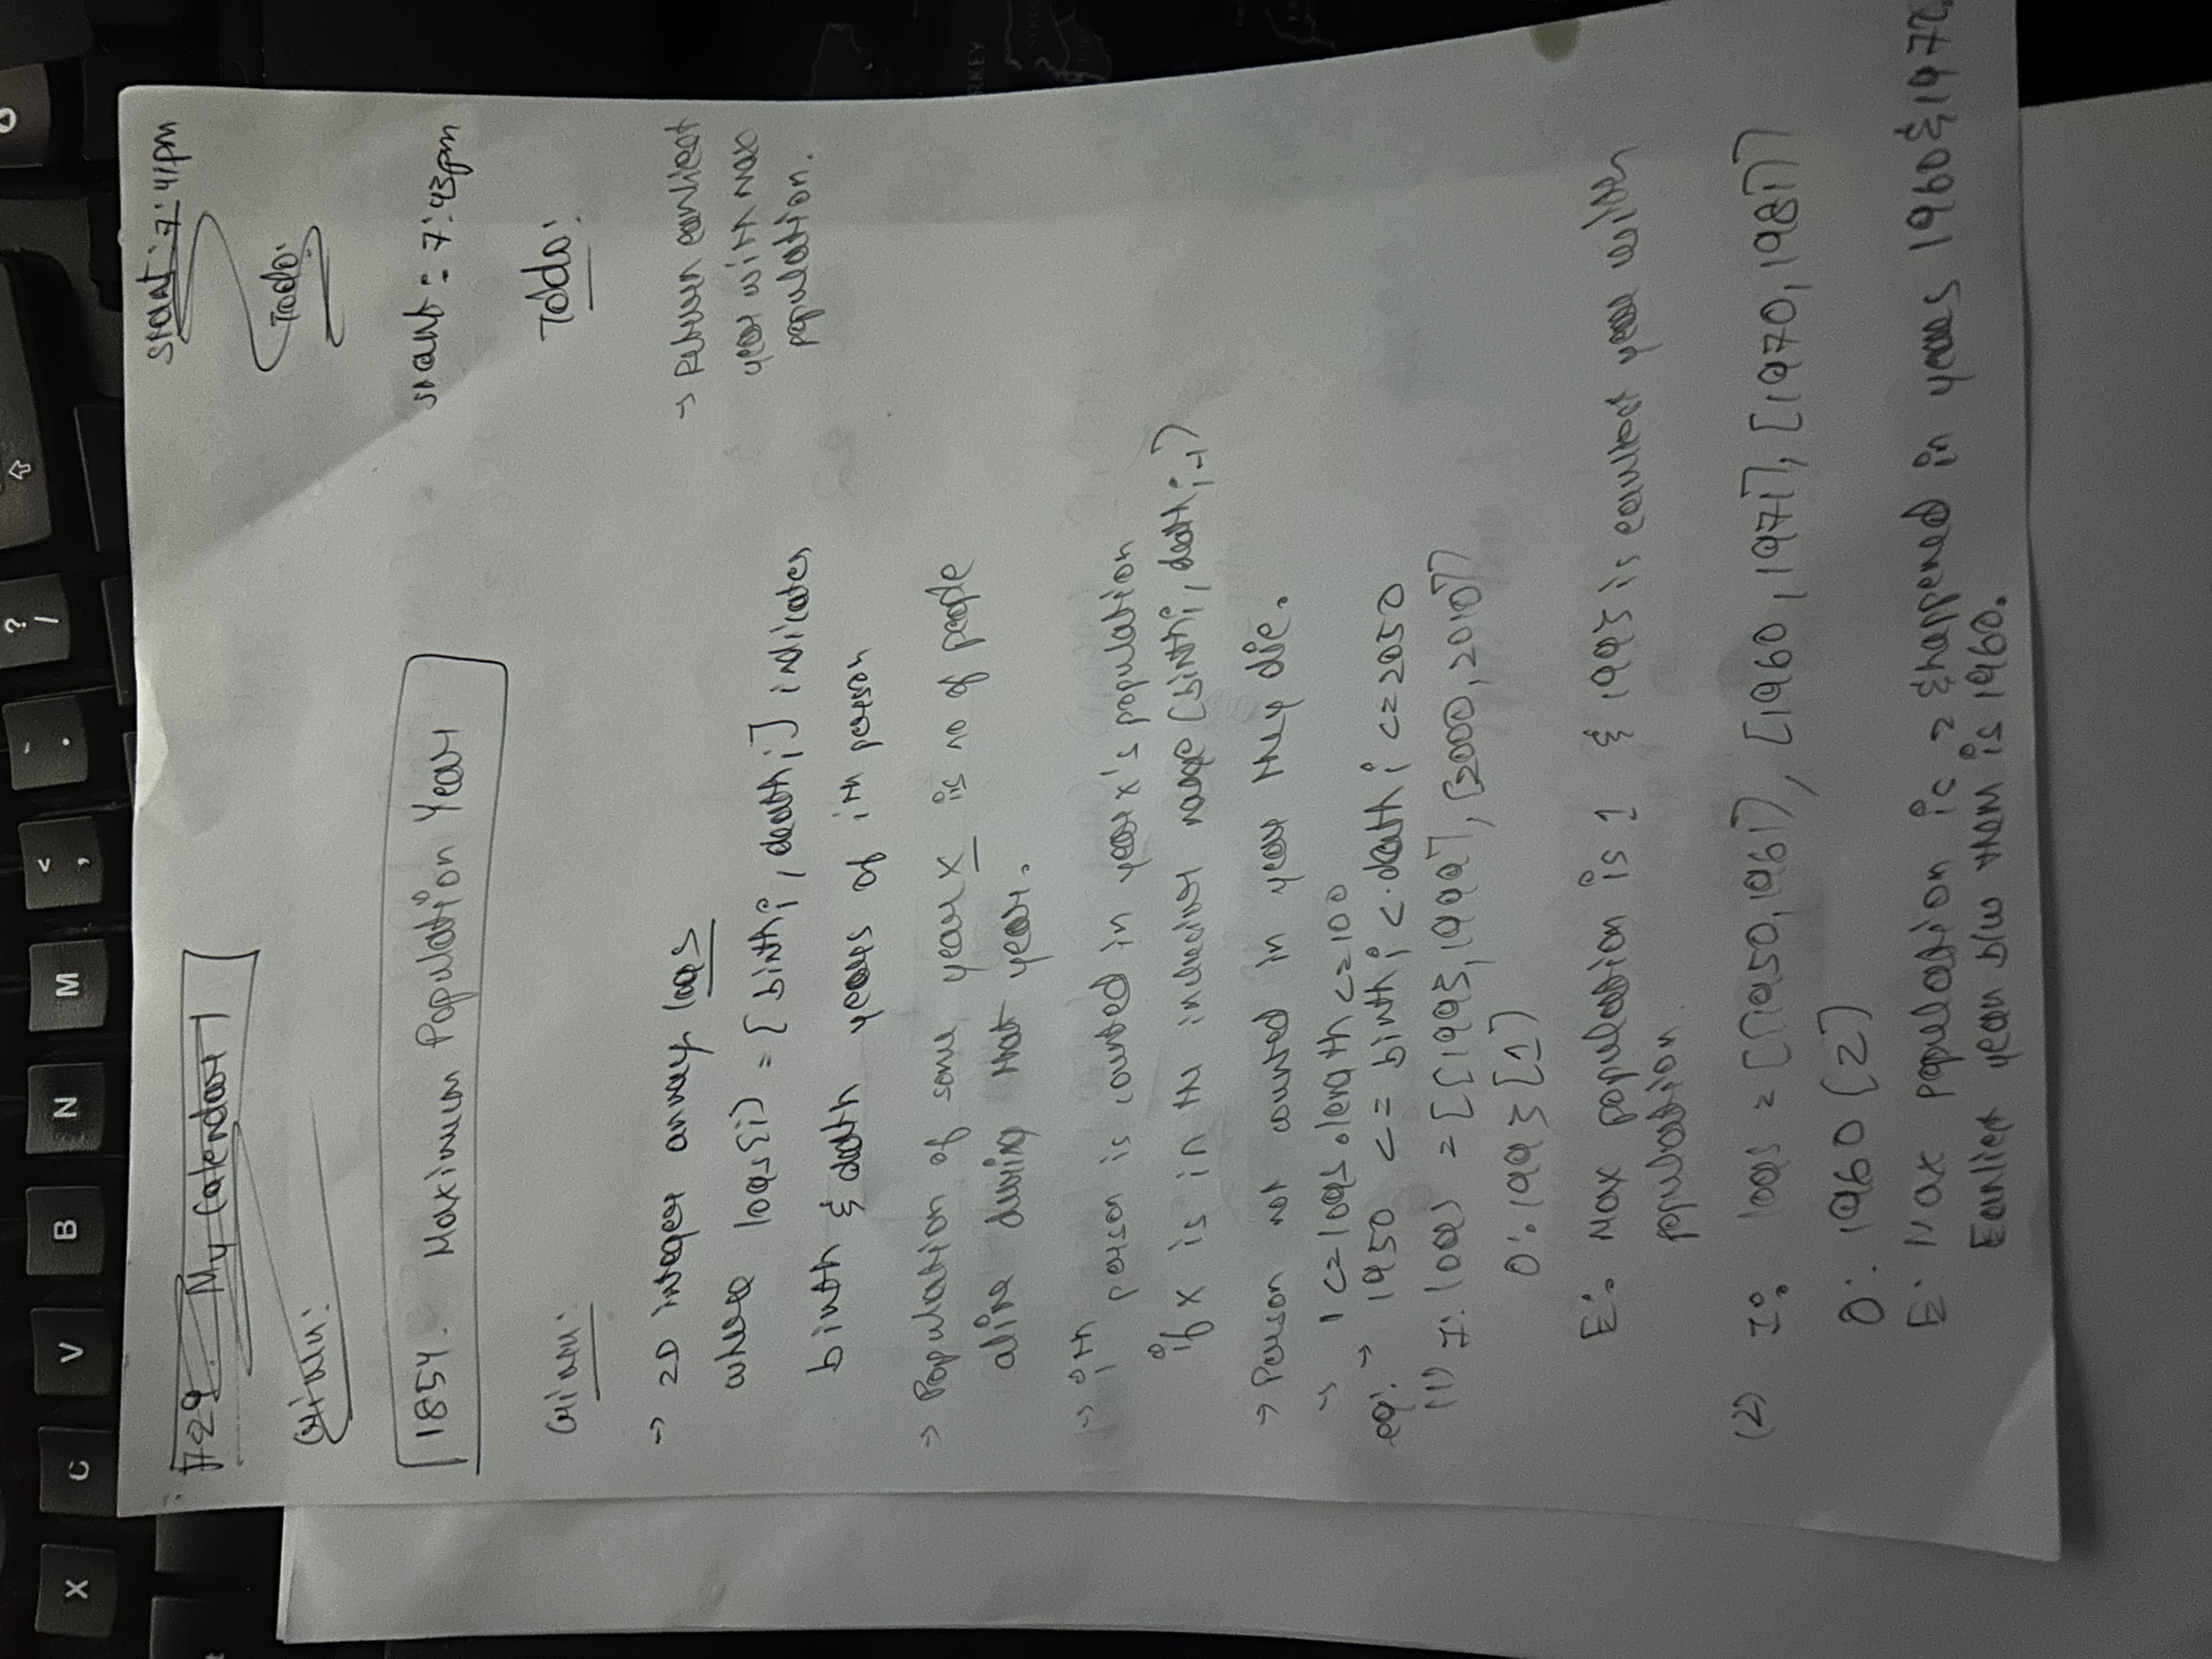 X C V B N M < , . ? /
729. My Calendar I
start: 7:41pm
Given:
Todo:
1854. Maximum Population Year
start: 7:43pm
Given:
Todo:
-> 2D integer array logs
where logs[i] = [birthi, deathi] indicates
birth & death years of ith person
-> Return earliest
year with max
population.
-> Population of some year x is no of people
alive during that year.
-> ith person is counted in year x's population
if x is in the inclusive range [birthi, deathi-1]
-> Person not counted in year they die.
-> 1 <= logs.length <= 100
-> 1950 <= birthi < deathi <= 2050
eg:
(1) I: logs = [[1993,1999], [2000, 2010]]
O: 1993 [1]
E: Max population is 1 & 1993 is earliest year with
population.
(2) I: logs = [[1950,1961], [1960,1971], [1970,1981]]
O: 1960 [2]
E: Max population is 2 & happened in years 1960 & 1970
Earliest year b/w them is 1960.
RKEY